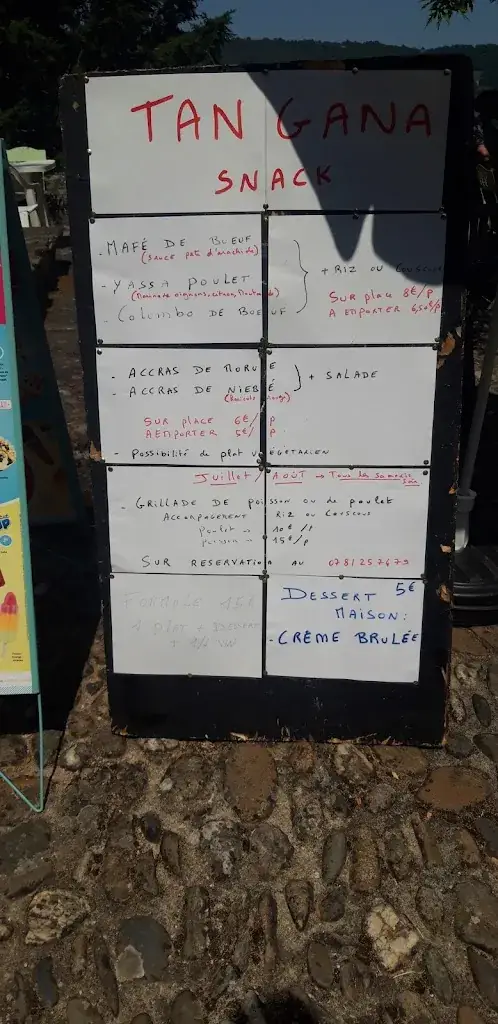 TAN GANA
SNACK
- MAFÉ DE BOEUF
(SAUCE pate d'arachide)
- YASSA POULET
(Marinade oignons, citron, Moutarde)
- COLOMBO DE BOEUF
+ RIZ OU COUSCOUS
SUR place 8€/p
A EMPORTER 6,50€/p
- ACCRAS DE MORUE
- ACCRAS DE NIEBÉ
(Haricots rouge)
+ SALADE
SUR PLACE 6€/ P
A EMPORTER 5€/ P
- Possibilité de plat VEGETARIEN
Juillet / AOÛT → Tous les samedis
- GRILLADE DE poisson ou de poulet
ACCOMPAGNEMENT RIZ ou COUSCOUS
poulet → 10€ /p
poisson → 15€/p
SUR RESERVATION AU
FORMULE 15€
1 PLAT + DESSERT
DESSERT 5€
MAISON:
- CRÈME BRULÉE